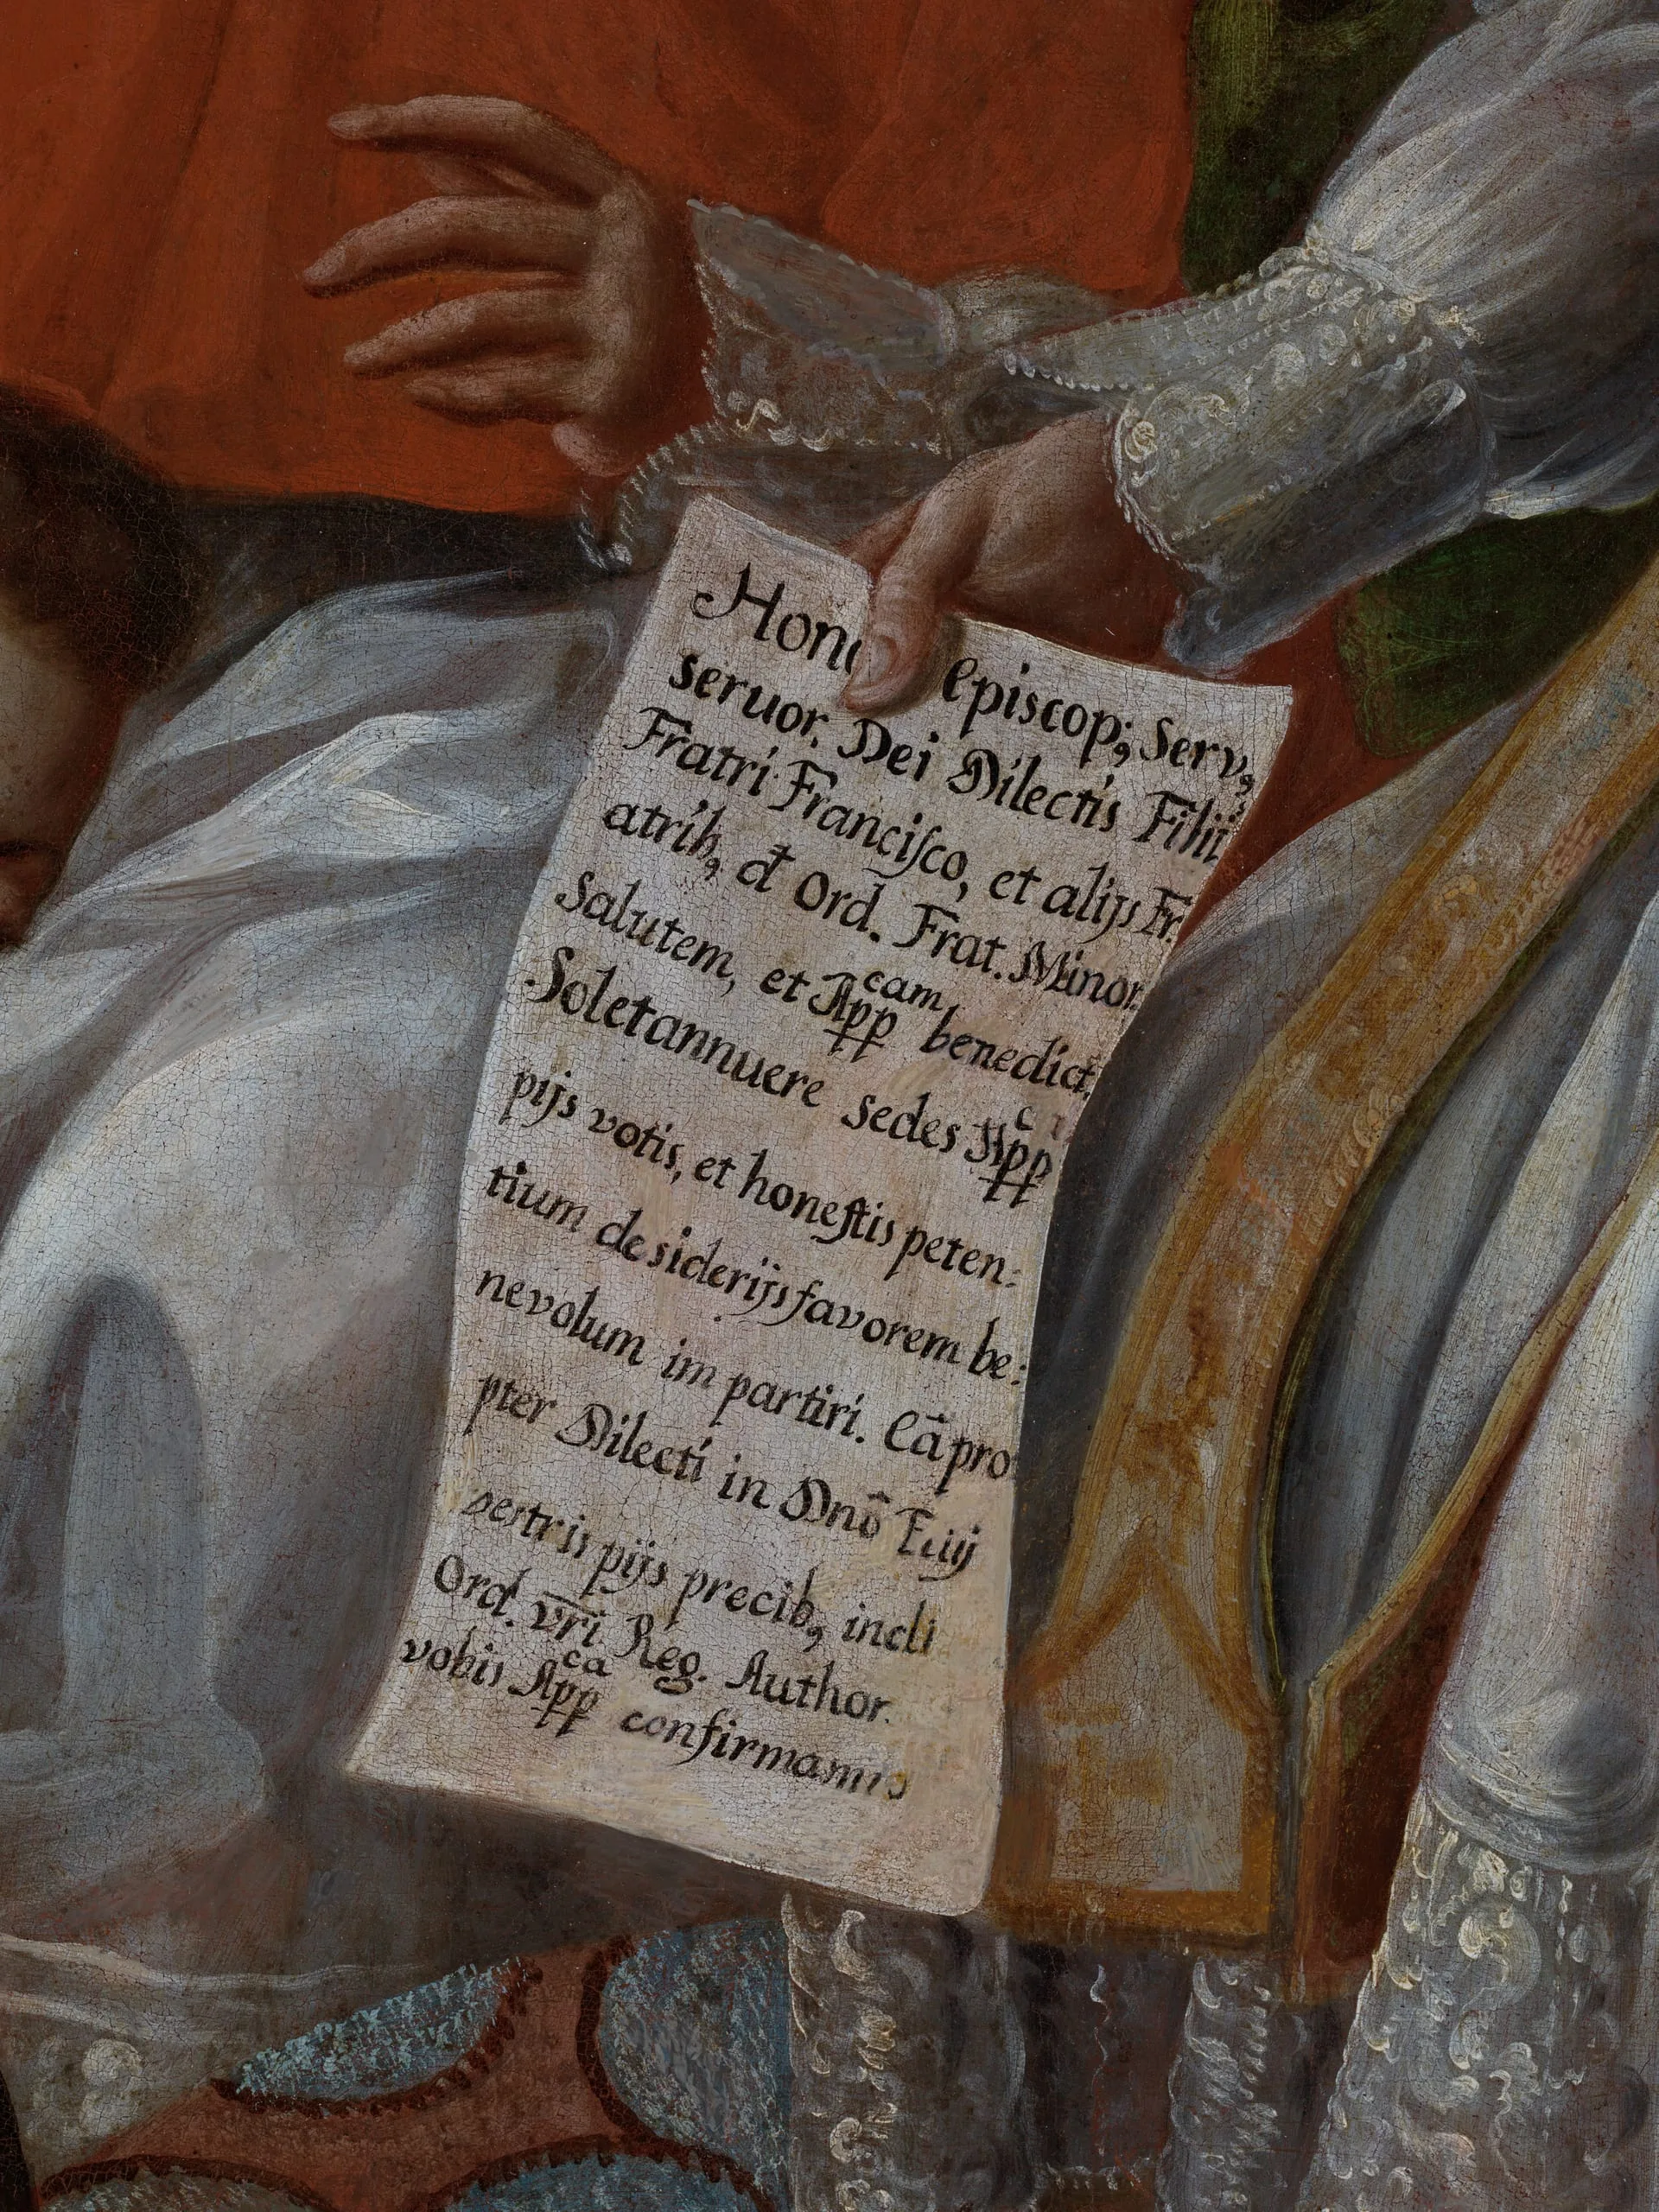 Hono episcop; Serv,
servor. Dei Dilectis Filii
Fratri Francisco, et alijs Fr.
atrib, et Ord. Frat. Minor.
Salutem, et App cam benedict.
Solet annuere sedes App c
pijs votis, et honestis peten:
tium desiderijs favorem be:
nevolum impartiri. Eā pro
pter Dilecti in Dnō
vestris pijs precib, incli
Ord. vri Reg. Author.
vobis App ca confirmamus